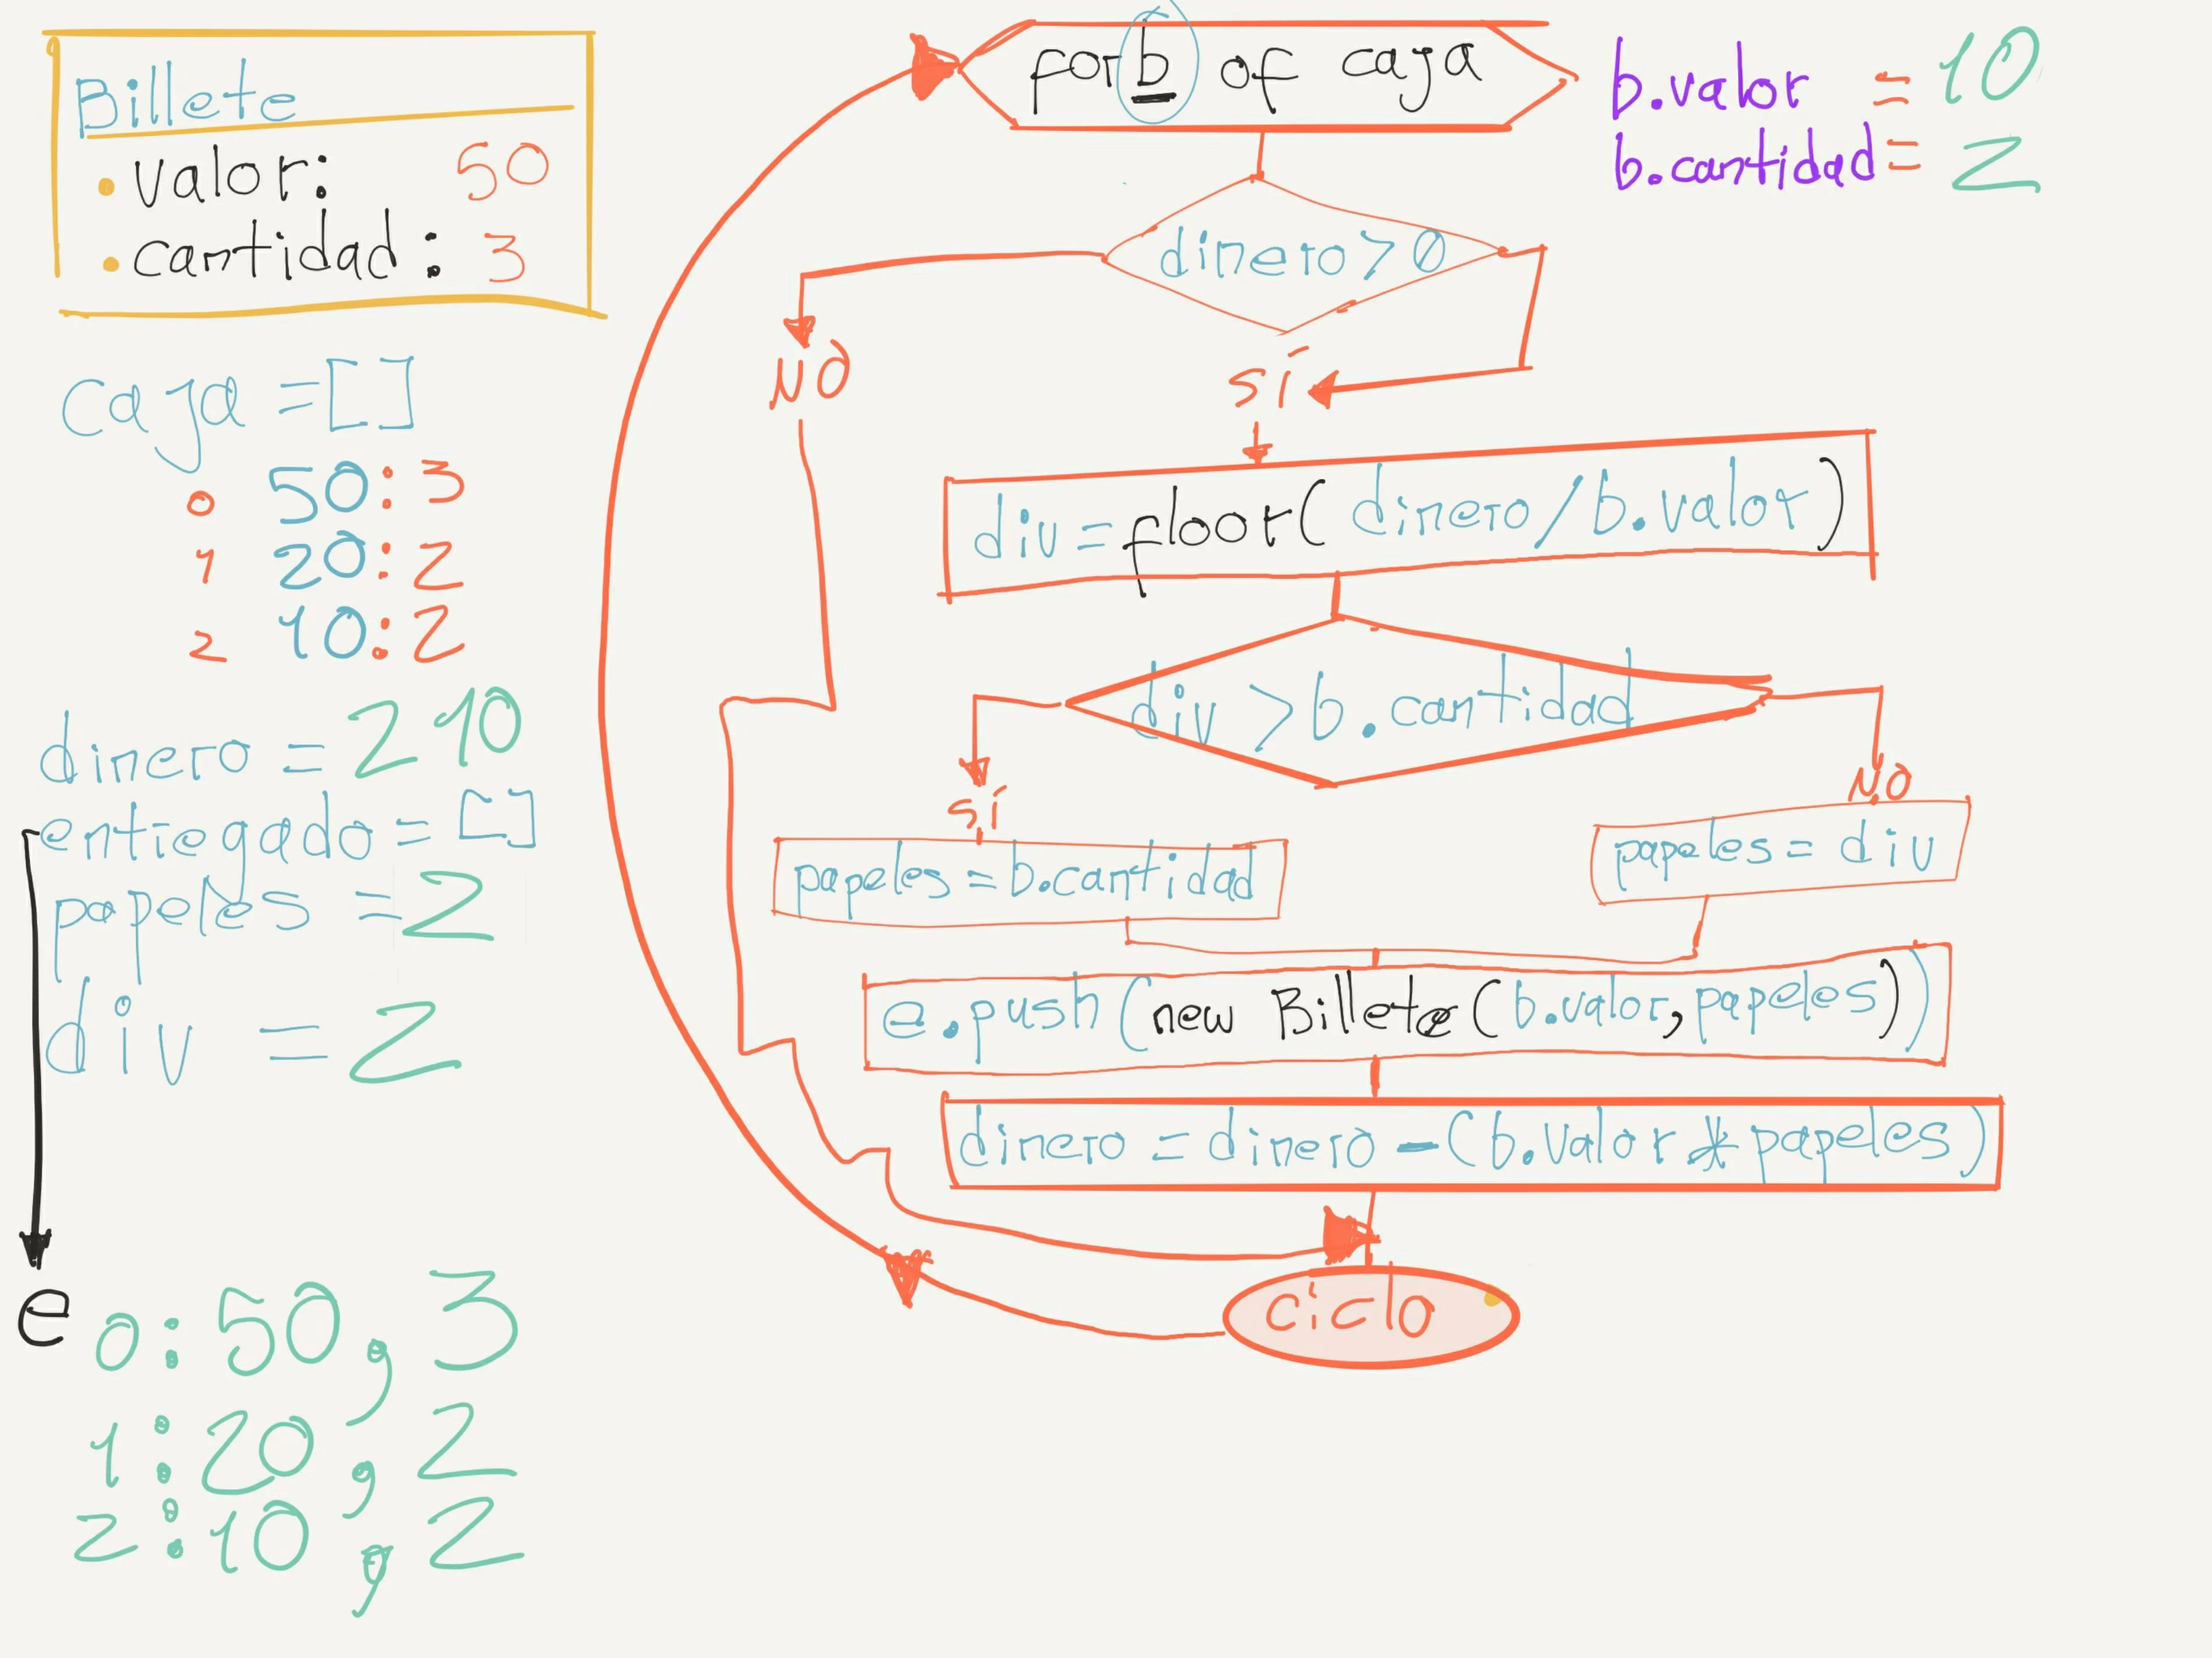 Billete
• valor: 50
• cantidad: 3
caja = []
0 50:3
1 20:2
2 10:2
dinero = 210
entregado = []
papeles = 2
div = 2
e 0:50,3
1:20,2
2:10,2
for b of caja
b.valor = 10
b.cantidad = 2
dinero > 0
NO
SÍ
div = floor( dinero / b.valor )
div > b.cantidad
SÍ
NO
papeles = b.cantidad
papeles = div
e.push( new Billete ( b.valor, papeles ) )
dinero = dinero - ( b.valor * papeles )
ciclo